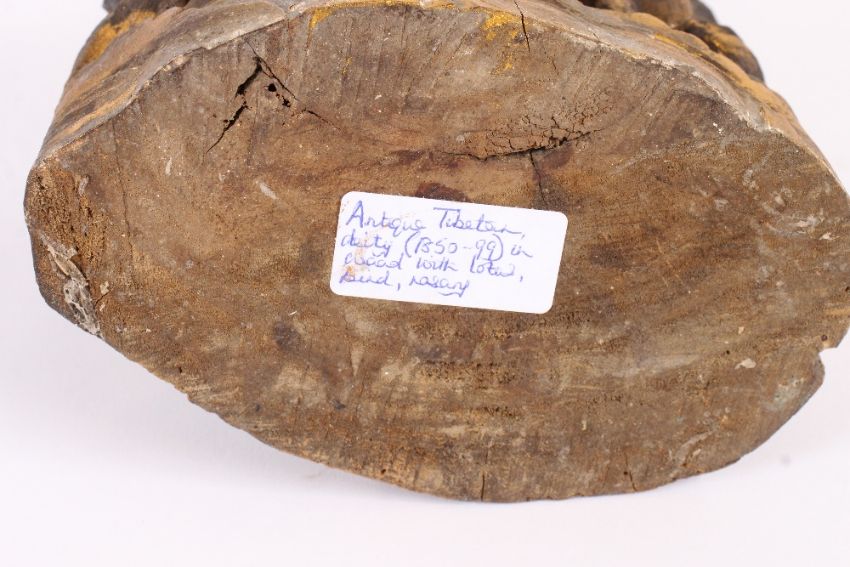 Antque Tibetan,
deity (1850-99) in
wood with lotus,
bird, rosary